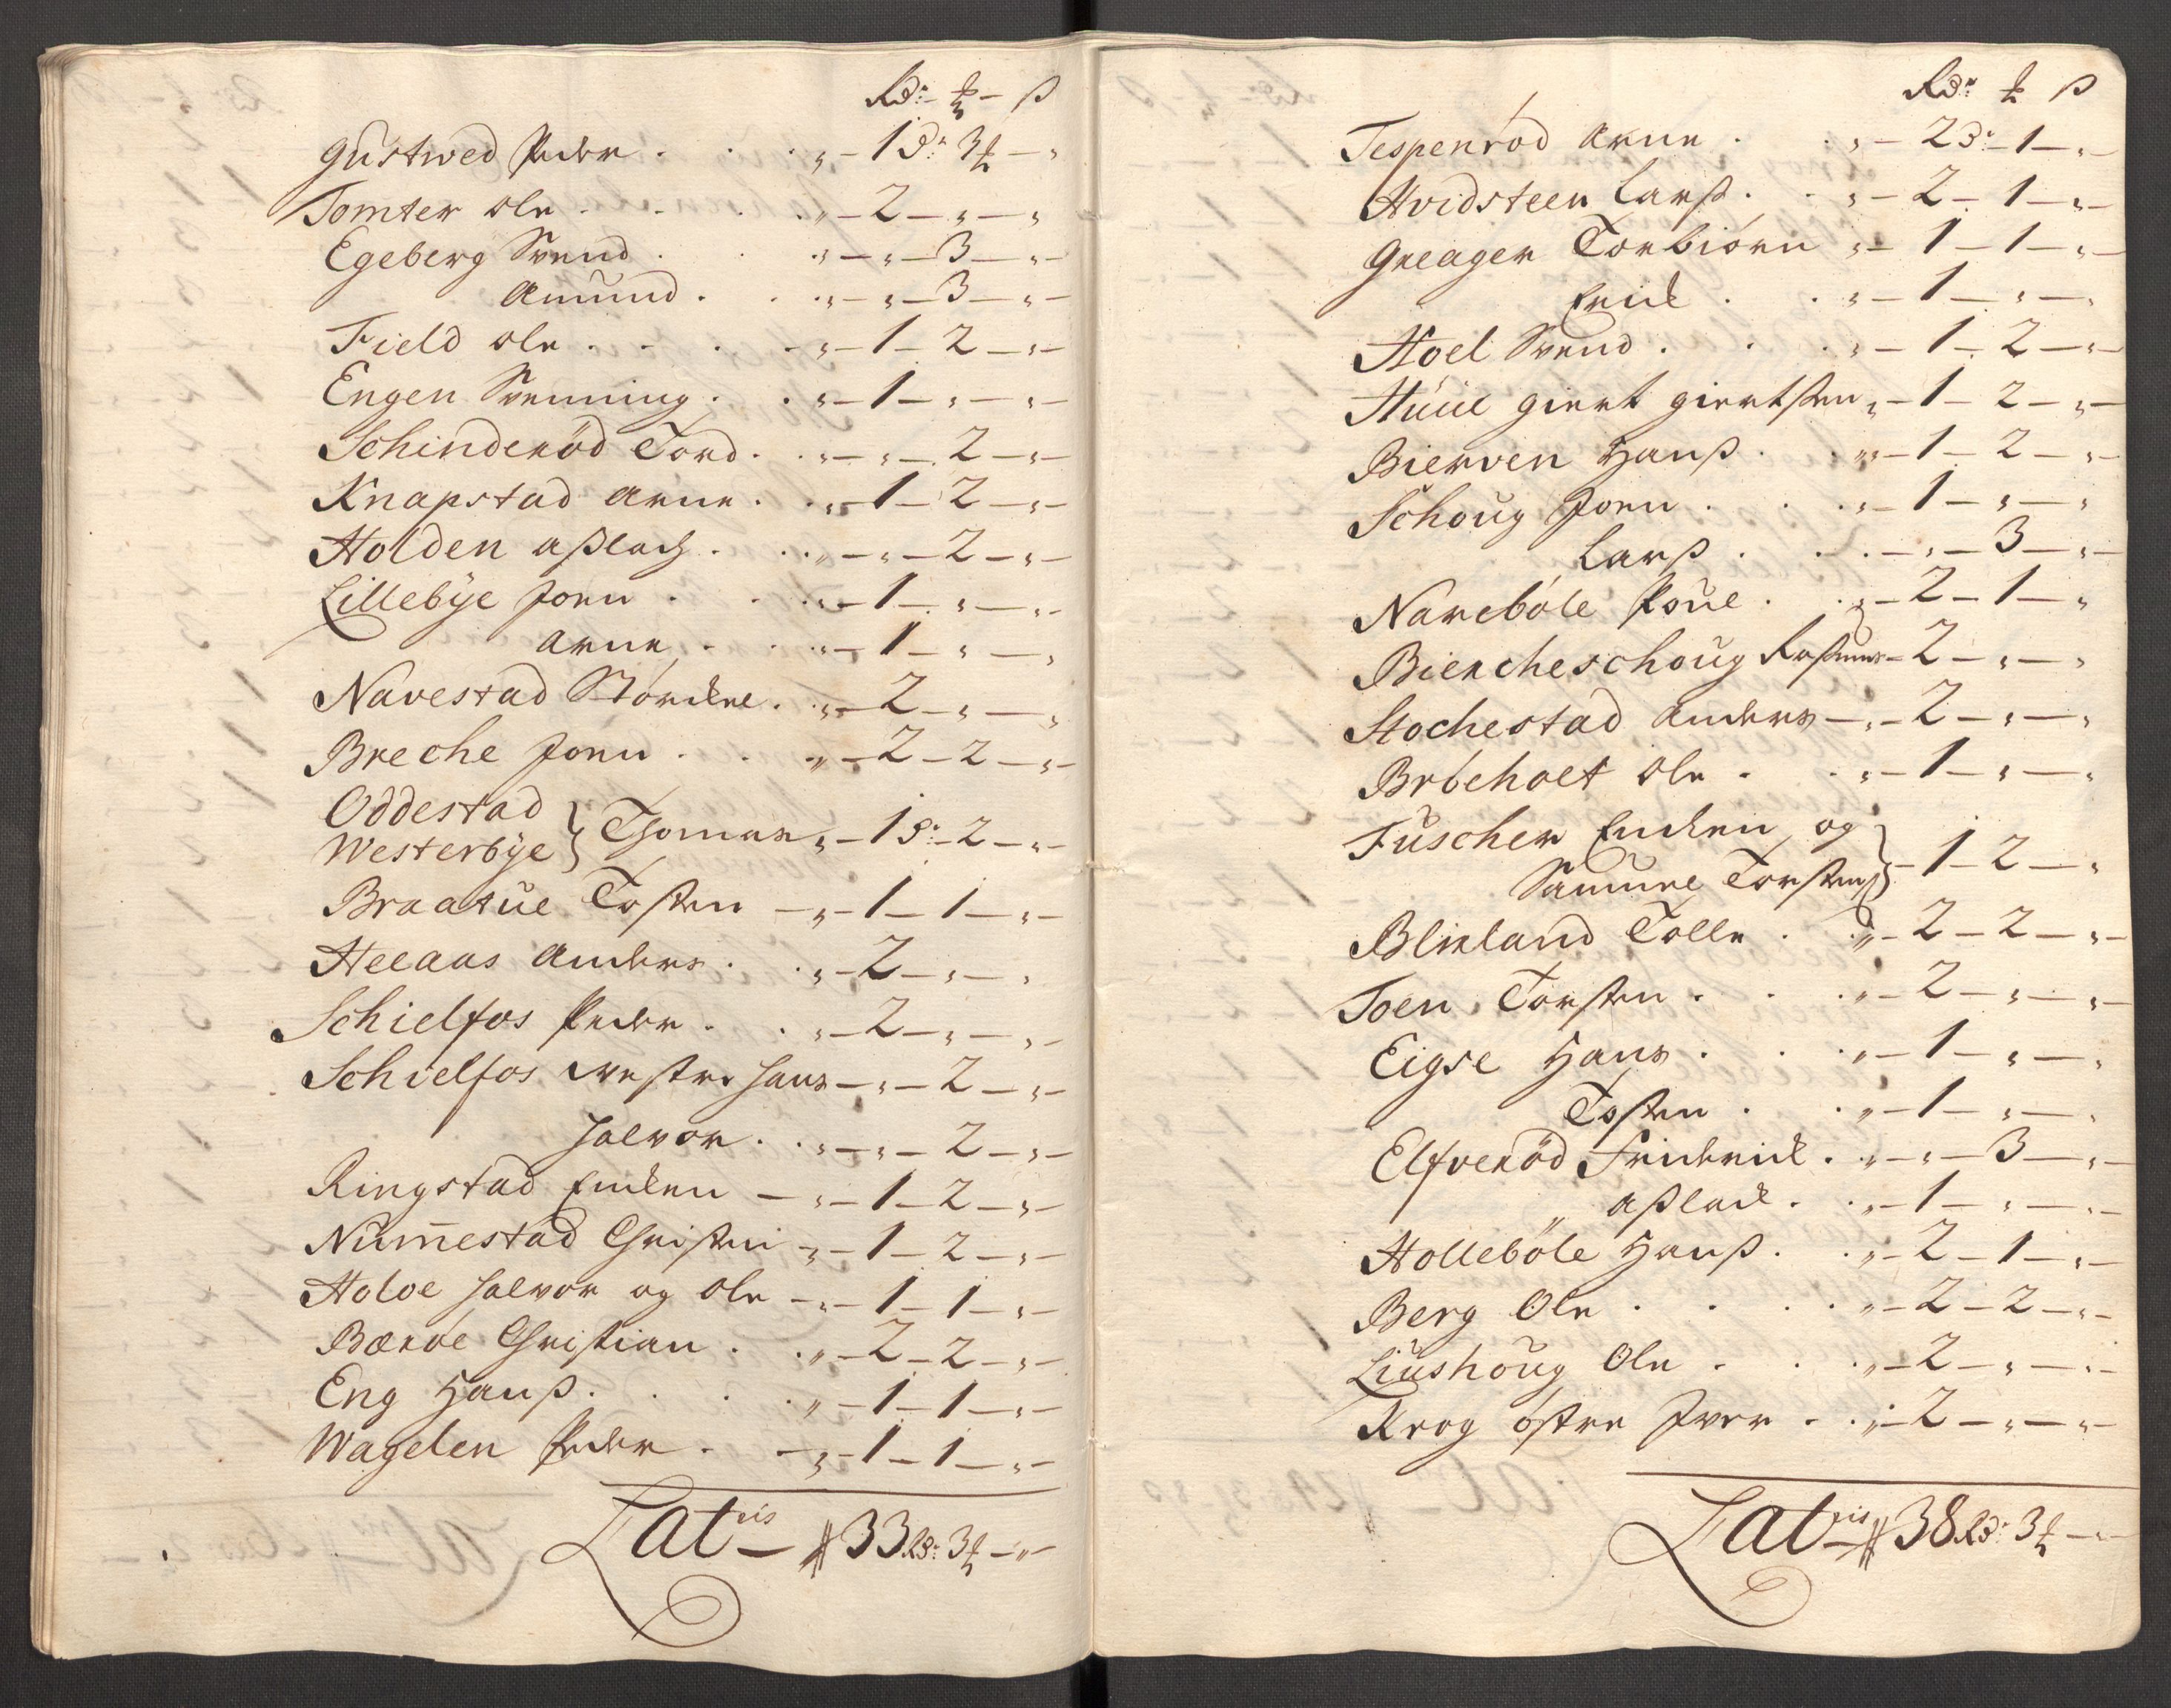 Rd: ℔ ß
Gustwed Peder . . „ – 1 d: 3 ℔ – „
Tomter Ole . . . „ – 2 – „ – „
Egeberg Svend . . „ – „ – 3 – „ –
Amund . . „ – „ – 3 – „ –
Field Ole . . . . „ – 1 – 2 – „ –
Engen Svenning . . „ – 1 – „ – „ –
Schinderød Tord . . „ – „ – 2 – „ –
Knapstad Arne . . „ – 1 – 2 – „ –
Holden Aßlach . . „ – „ – 2 – „ –
Lillebÿe Joen . . „ – 1 – „ – „ –
Arne . . „ – 1 – „ – „
Navestad Størcker . „ – 2 – „ – „
Breche Joen . . „ – 2 – 2 – „ –
Oddestad
Westerbÿe } Thomas „ – 1 d: – 2 – „ –
Braatue Tosten – „ – 1 – 1 – „ –
Heeaas Anders . . „ – 2 – „ – „
Schielfos Peder . . „ – 2 – „ – „ –
Schielfos westre Hans – „ – 2 – „ –
Halvor . . „ – „ – 2 – „ –
Ringstad Endren – „ – 1 – 2 – „ –
Num̄estad Christen „ – 1 – 2 – „ –
Holøe Halvor og Ole – „ – 1 – 1 – „ –
Bærøe Christian . . „ – 2 – 2 – „ –
Eng Hanß . . . . „ – 1 – 1 – „ –
Wagelen Peder . – „ – 1 – 1 – „ –
Lat:ris – 33 Rd: 3 ℔ – „ –
Rd: ℔ ß
Tespenrød Arne . . „ – 2 d: – 1 – „ –
Hvidsteen Larß . . „ – 2 – 1 – „ –
Greager Torbiørn „ – 1 – 1 – „ –
Erick . . „ – 1 – „ – „
Hoel Svend . . . „ – 1 – 2 – „ –
Huul Giert Giertßen „ – 1 – 2 – „ –
Bierven Hanß . . „ – 1 – 2 – „ –
Schoug Joen . . . „ – 1 – „ – „
Larß . . . – „ – 3 – „ –
Narebøle Poul . . „ – 2 – 1 – „
Biercheschoug Raßmus – 2 – „ – „
Stochestad Anders – „ – 2 – „ – „
Brøcholt Ole . . „ – 1 – „ – „
Fuscher Endren og
Samuel Torsten } – 1 – 2 – „
Blikland Tolle . „ – 2 – 2 – „ –
Toen Torsten . . . „ – 2 – „ – „ –
Eigse Hans . . . „ – 1 – „ – „
Tosten . . „ – 1 – „ – „
Elfverød Friderick . „ – „ – 3 – „ –
„ Aßlack . . „ – 1 – „ – „ –
Hollebøle Hanß . . „ – 2 – 1 – „ –
Berg Ole . . . . „ – 2 – 2 – „ –
Liushoug Ole . . . „ – 2 – „ – „ –
Krog østre Iver . . „ – 2 – „ – „ –
Lat:ris – 38 Rd: 3 ℔ – „ –